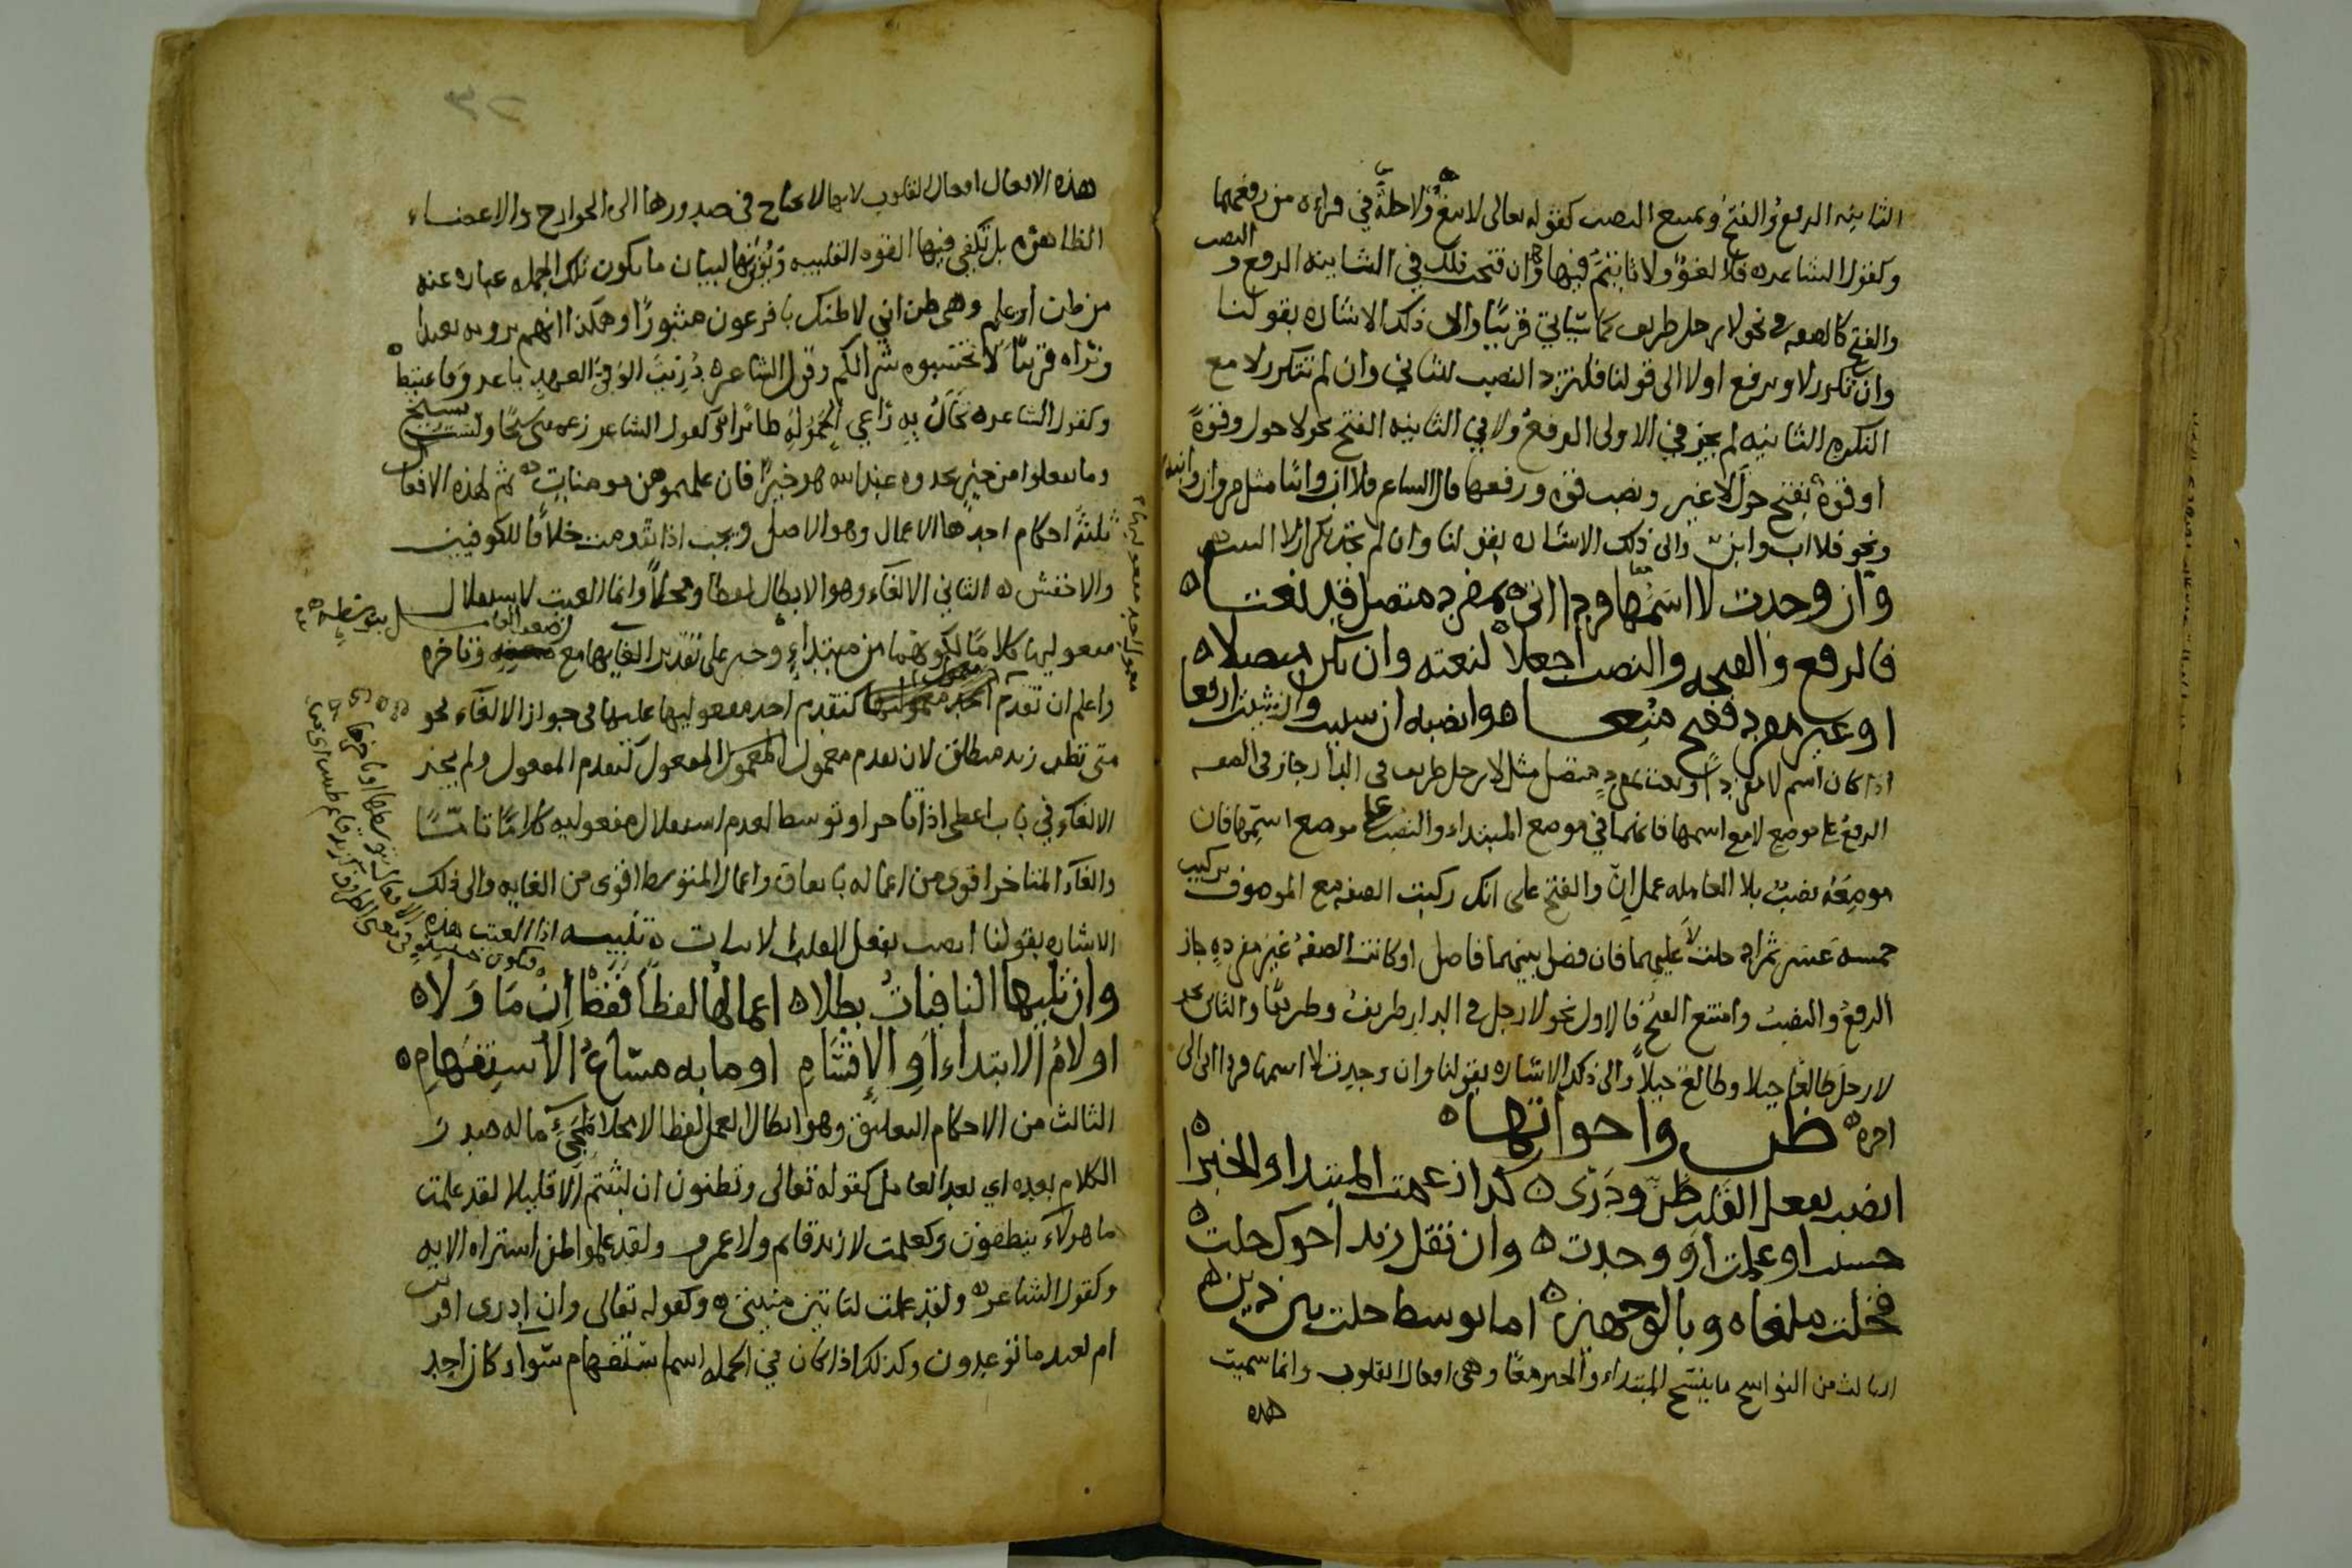 الثانيه الرفع والفتح ويمتنع النصب كقوله تعالى لا بيع ولا خلة في قراءه من رفعهما
وكقول الشاعر فلا لغو ولا تاثيم فيها وان فتحت فلك في الثانيه الرفع و النصب
والفتح كالصفه في نحو لا رجل طريف كما سياتي قريبا والى ذلك الاشاره بقولنا
وان تكرر لا ويرفع اولا الى قولنا فلتزد النصب للثاني وان لم تتكرر لا مع
النكره الثانيه لم يجز في الاولى الرفع ولا في الثانيه الفتح نحو لا حول وقوة
او قوة بفتح حول لا غير ونصب قوه ورفعها قال الشاعر فلا اب وابنا مثل مروان وابنه
ونحو فلا اب وابن والى ذلك الاشاره بقولنا وان لم تجد تكرار لا البيت
وان وحدت لا اسمها فردا اتى بمفرد متصل قد نعتا
فالرفع والفتحه والنصب اجعلا لنعته وان يكن منفصلا
او غير مفرد ففتح منعا وانصبه ان شئت وان شئت ارفعا
اذا كان اسم لا مفردا ونعت بمفرد متصل مثل لا رجل طريف في الدار جاز في الصفه
الرفع على موضع لا مع اسمها فانهما في موضع المبتداء والنصب على موضع اسمها فان
موضعه نصب بلا العامله عمل ان والفتح على انك ركبت الصفه مع الموصوف تركيب
خمسه عشر ثم ادخلت لا عليهما فان فصل بينهما فاصل او كانت الصفه غير مفرده جاز
الرفع والنصب وامتنع الفتح فالاول نحو لا رجل في الدار طريف وطريفا والثاني نحو
لا رجل طالعا جبلا وطالع جبلا والى ذلك الاشاره بقولنا وان وجدت لا اسمها فردا اتى الى
اخره ظن واخواتها
انصب بفعل القلب ظن ودرى كذا زعمت المبتدا والخبرا
حسبت او علمت او وجدت وان تقل زيد اخوك خلت
فخلت ملغاه وبالوجهين اما توسط خلت بين ذين
الثالث من النواسخ ما ينسخ المبتداء والخبر معا وهي افعال القلوب وانما سميت
هذه
هذه الافعال افعال القلوب لانها لا تحتاج في صدورها الى الجوارح والاعضاء
الظاهره بل تكفي فيها القوه القلبيه ويؤتى بها لبيان ما يكون تلك الجمله عباره عنه
من ظن او علم وهي ظن اني لاظنك يا فرعون مثبورا وهكذا انهم يرونه بعيدا
ونراه قريبا لا تحسبوه شرا لكم وقول الشاعر دريت الوفي العهد يا عرو فاغتبط
وكقول الشاعر تخال به راعي الحمولة طائرا وكقول الشاعر زعمتني شيخا ولست بشيخ
وما تفعلوا من خير تجدوه عند الله هو خيرا فان علمتموهن مومنات ثم لهذه الافعال
ثلثة احكام احدها الاعمال وهو الاصل ويجب اذا تقدمت خلافا للكوفيين
والاخفش الثاني الالغاء وهو الابطال لفظا ومحلا وانما الغيت لاستقلال
معموليها كلاما لكونهما من مبتداء وخبر على تقدير الغايها مع وتاخره
واعلم ان تقدم معمول كتقدم احد مفعوليها عليها في جواز الالغاء نحو
متى تظن زيد منطلق لان تقدم معمول المعمول كتقدم المعمول ولم يجز
الالغاء في باب اعطى اذا تاخر او توسط لعدم استقلال مفعوليه كلاما تاما
والغاء المتاخر اقوى من اعماله باتفاق واعمال المتوسط اقوى من الغايه والى ذلك
الاشاره بقولنا انصب بفعل القلب الابيات تنبيه اذا الغيت هذه
وان تليها النافيات بطلا اعمالها لفظا فقط ان ما ولا
او لام الابتداء او الاقسام او ما به مساغ الاستفهام
الثالث من الاحكام التعليق وهو ابطال العمل لفظا لا محلا لمجيء ما له صدر
الكلام بعده اي بعد العامل كقوله تعالى وتظنون ان لبثتم الا قليلا لقد علمت
ما هولاء ينطقون وكعلمت لا زيد قائم ولا عمرو ولقد علموا لمن اشتراه الايه
وكقول الشاعر ولقد علمت لتاتين منيتي وكقوله تعالى وان ادرى اقريب
ام بعيد ما توعدون وكذلك اذا كان في الجمله اسم استفهام سواء كان احد